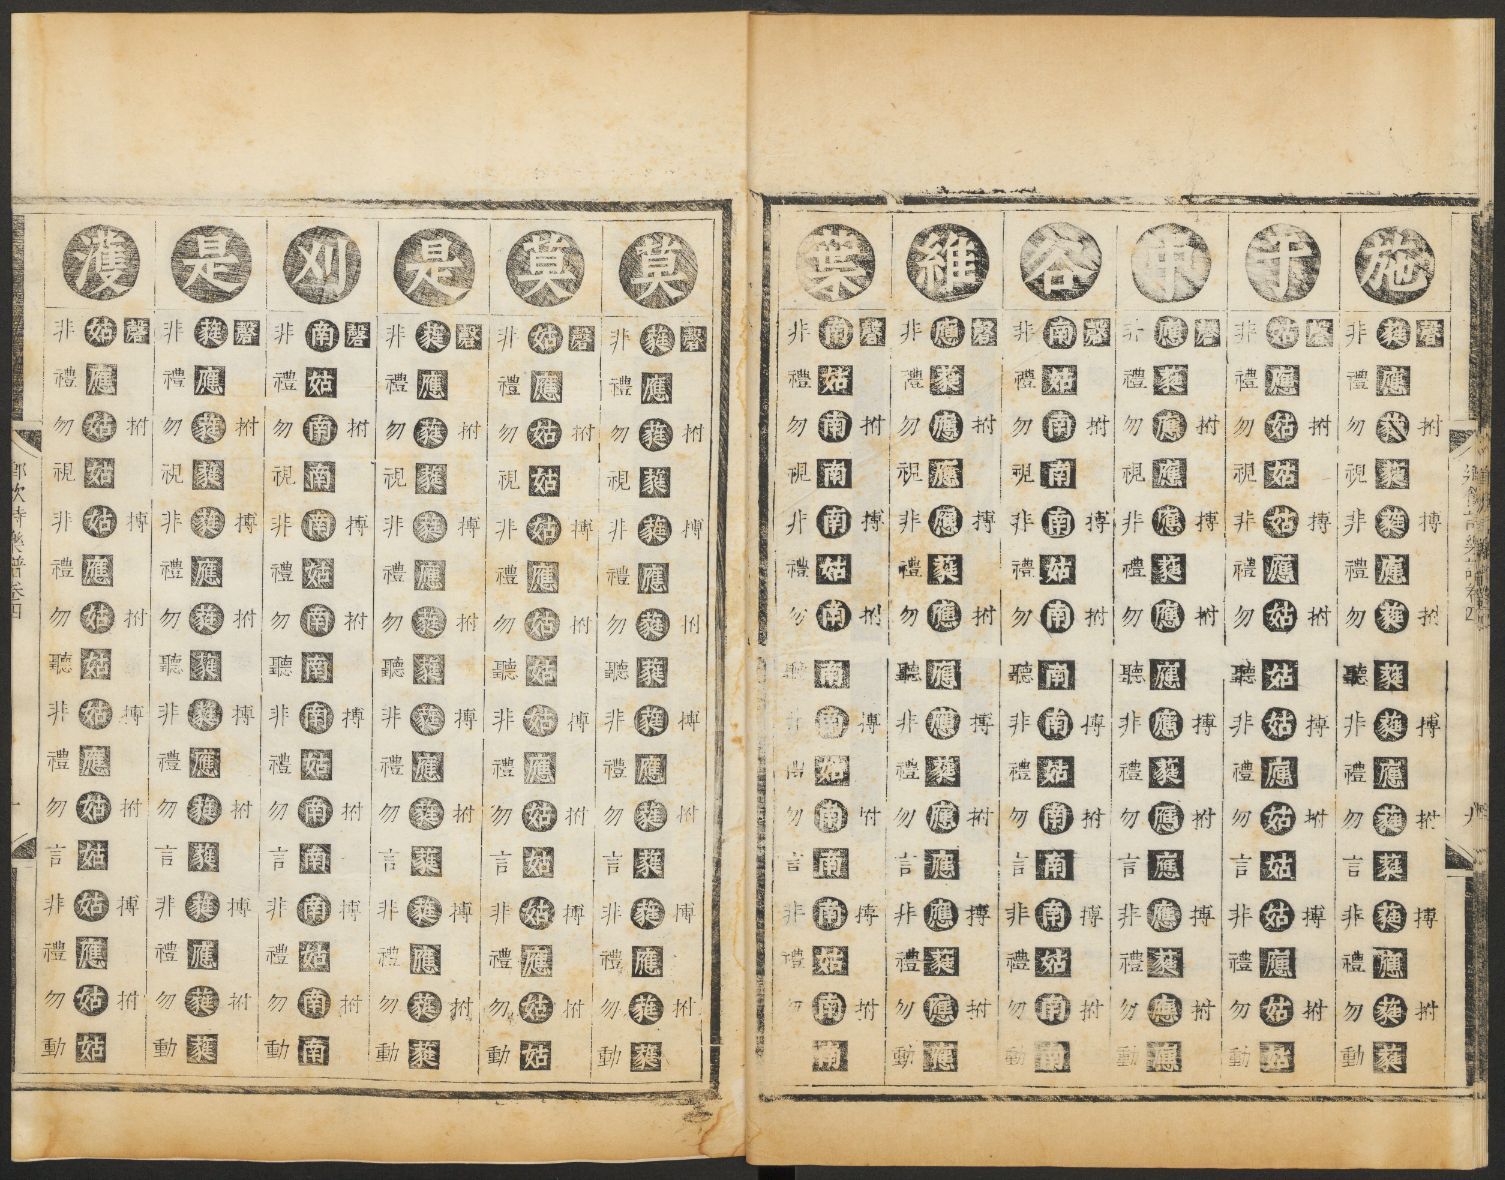 施
磬拊搏拊搏拊搏拊
蕤應蕤蕤蕤應蕤蕤蕤應蕤蕤蕤應蕤蕤
非禮勿視非禮勿聽非禮勿言非禮勿動
于
磬拊搏拊搏拊搏拊
姑應姑姑姑應姑姑姑應姑姑姑應姑姑
非禮勿視非禮勿聽非禮勿言非禮勿動
中
磬拊搏拊搏拊搏拊
應蕤應應應蕤應應應蕤應應應蕤應應
非禮勿視非禮勿聽非禮勿言非禮勿動
谷
磬拊搏拊搏拊搏拊
南姑南南南姑南南南姑南南南姑南南
非禮勿視非禮勿聽非禮勿言非禮勿動
維
磬拊搏拊搏拊搏拊
應蕤應應應蕤應應應蕤應應應蕤應應
非禮勿視非禮勿聽非禮勿言非禮勿動
葉
磬拊搏拊搏拊搏拊
南姑南南南姑南南南姑南南南姑南南
非禮勿視非禮勿聽非禮勿言非禮勿
莫
磬拊搏拊搏拊搏拊
蕤應蕤蕤蕤應蕤蕤蕤應蕤蕤蕤應蕤蕤
非禮勿視非禮勿聽非禮勿言非禮勿動
莫
磬拊搏拊搏拊搏拊
姑應姑姑姑應姑姑姑應姑姑姑應姑姑
非禮勿視非禮勿聽非禮勿言非禮勿動
是
磬拊搏拊搏拊搏拊
蕤應蕤蕤蕤應蕤蕤蕤應蕤蕤蕤應蕤蕤
非禮勿視非禮勿聽非禮勿言非禮勿動
刈
磬拊搏拊搏拊搏拊
南姑南南南姑南南南姑南南南姑南南
非禮勿視非禮勿聽非禮勿言非禮勿動
是
磬拊搏拊搏拊搏拊
蕤應蕤蕤蕤應蕤蕤蕤應蕤蕤蕤應蕤蕤
非禮勿視非禮勿聽非禮勿言非禮勿動
濩
磬拊搏拊搏拊搏拊
姑應姑姑姑應姑姑姑應姑姑姑應姑姑
非禮勿視非禮勿聽非禮勿言非禮勿動
鄉飲詩樂譜卷四